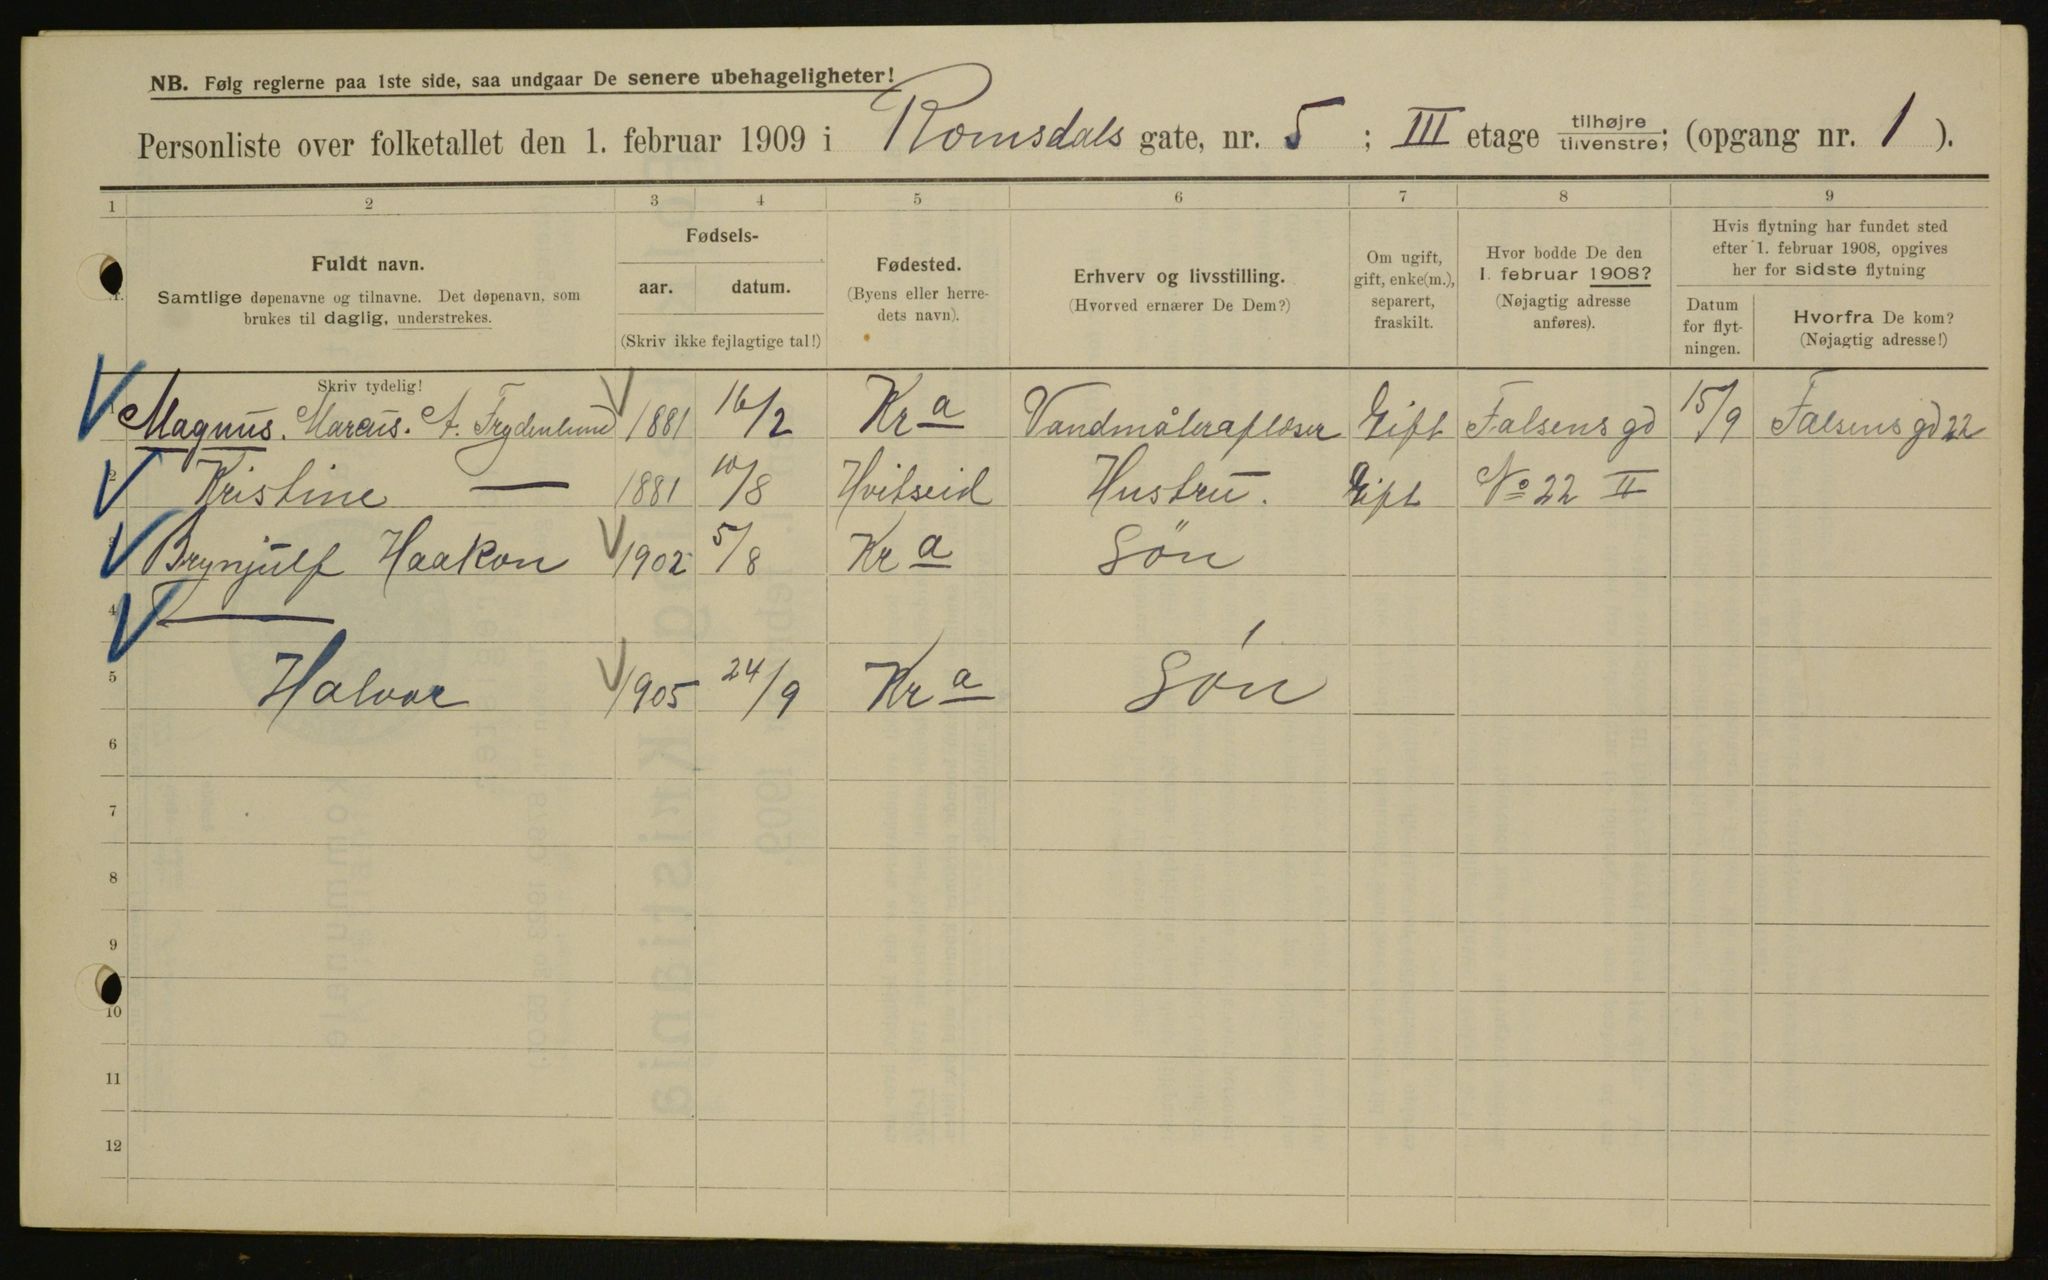 NB. Følg reglerne paa 1ste side, saa undgaar De senere ubehageligheter!
Personliste over folketallet den 1. februar 1909 i Romsdals gate, nr. 5 ; III etage tilhøjre tilvenstre; (opgang nr. 1 ).
1 2 3 4 5 6 7 8 9
Fuldt navn.
Samtlige døpenavne og tilnavne. Det døpenavn, som
brukes til daglig, understrekes.
Skriv tydelig!
Fødsels-
aar. datum.
(Skriv ikke fejlagtige tal!)
Fødested.
(Byens eller herre-
dets navn).
Erhverv og livsstilling.
(Hvorved ernærer De Dem?)
Om ugift,
gift, enke(m.),
separert,
fraskilt.
Hvor bodde De den
1. februar 1908?
(Nøjagtig adresse
anføres).
Hvis flytning har fundet sted
efter 1. februar 1908, opgives
her for sidste flytning
Datum
for flyt-
ningen.
Hvorfra De kom?
(Nøjagtig adresse!)
1 Magnus. Marcus. A. Frydenlund 1881 16/2 Kra Vandmåleraflæser Gift Falsens gd 15/9 Falsens gd 22
2 Kristine — 1881 10/8 Hvitseid Hustru. Gift No 22 II
3 Brynjulf Haakon 1902 5/8 Kra Søn
4 —
5 Halvor 1905 24/9 Kra Søn
6
7
8
9
10
11
12